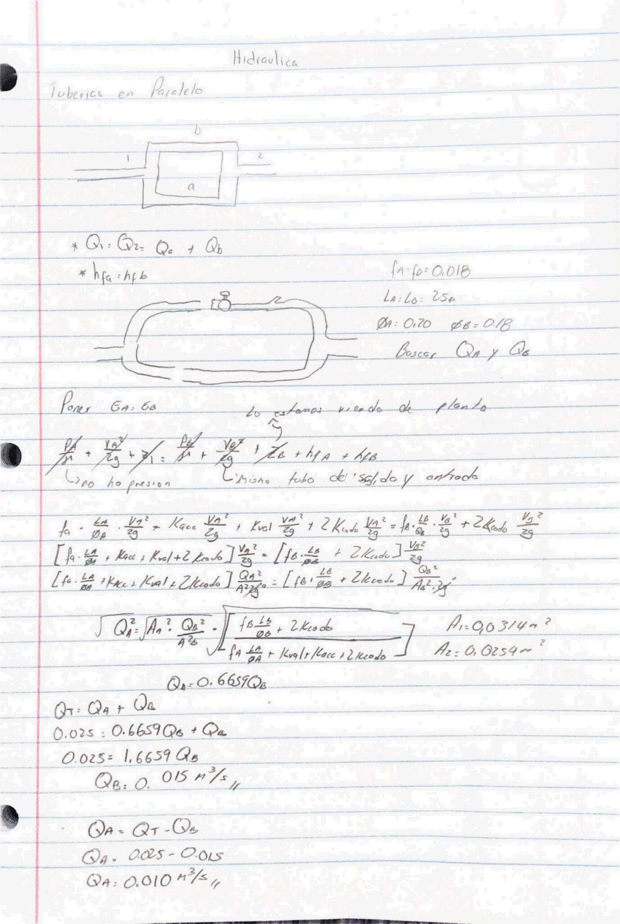 Hidraulica
Tuberias en Paralelo
b
1
2
a
* Q1 = Q2 = Qa + Qb
* hfa = hfb
fA = fB = 0.018
LA = LB = 25m
ØA = 0.20 ØB = 0.18
Buscar QA y QB
Poner EA = EB
Lo estamos viendo de planta
PA/γ + VA²/2g + Z1 = PB/γ + VB²/2g + ZB + hfA + hfB
↳ no ha presion
↳ mismo tubo de salida y entrada
fa · LA/ØA · VA²/2g + Kacc VA²/2g + Kval VA²/2g + 2Kcodo VA²/2g = fB · LB/ØB · VB²/2g + 2Kcodo VB²/2g
[fa · LA/ØA + Kacc + Kval + 2Kcodo] VA²/2g = [fB · LB/ØB + 2Kcodo] VB²/2g
[fa · LA/ØA + Kacc + Kval + 2Kcodo] QA²/A²2g = [fB · LB/ØB + 2Kcodo] QB²/AB² · 2g
√QA² = √AA² · QB²/A²B · √[fB LB/ØB + 2Kcodo / fA LA/ØA + Kval + Kacc + 2Kcodo]
A1 = 0,0314m²
A2 = 0.0254m²
QA = 0.6659QB
QT = QA + QB
0.025 = 0.6659QB + QB
0.025 = 1.6659QB
QB = 0. 015 m³/s //
QA = QT - QB
QA = 0.025 - 0.015
QA = 0.010 m³/s //